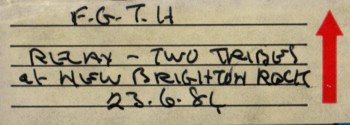 F.G.T.H
RELAX - TWO TRIBES
at NEW BRIGHTON ROCK
23.6.84